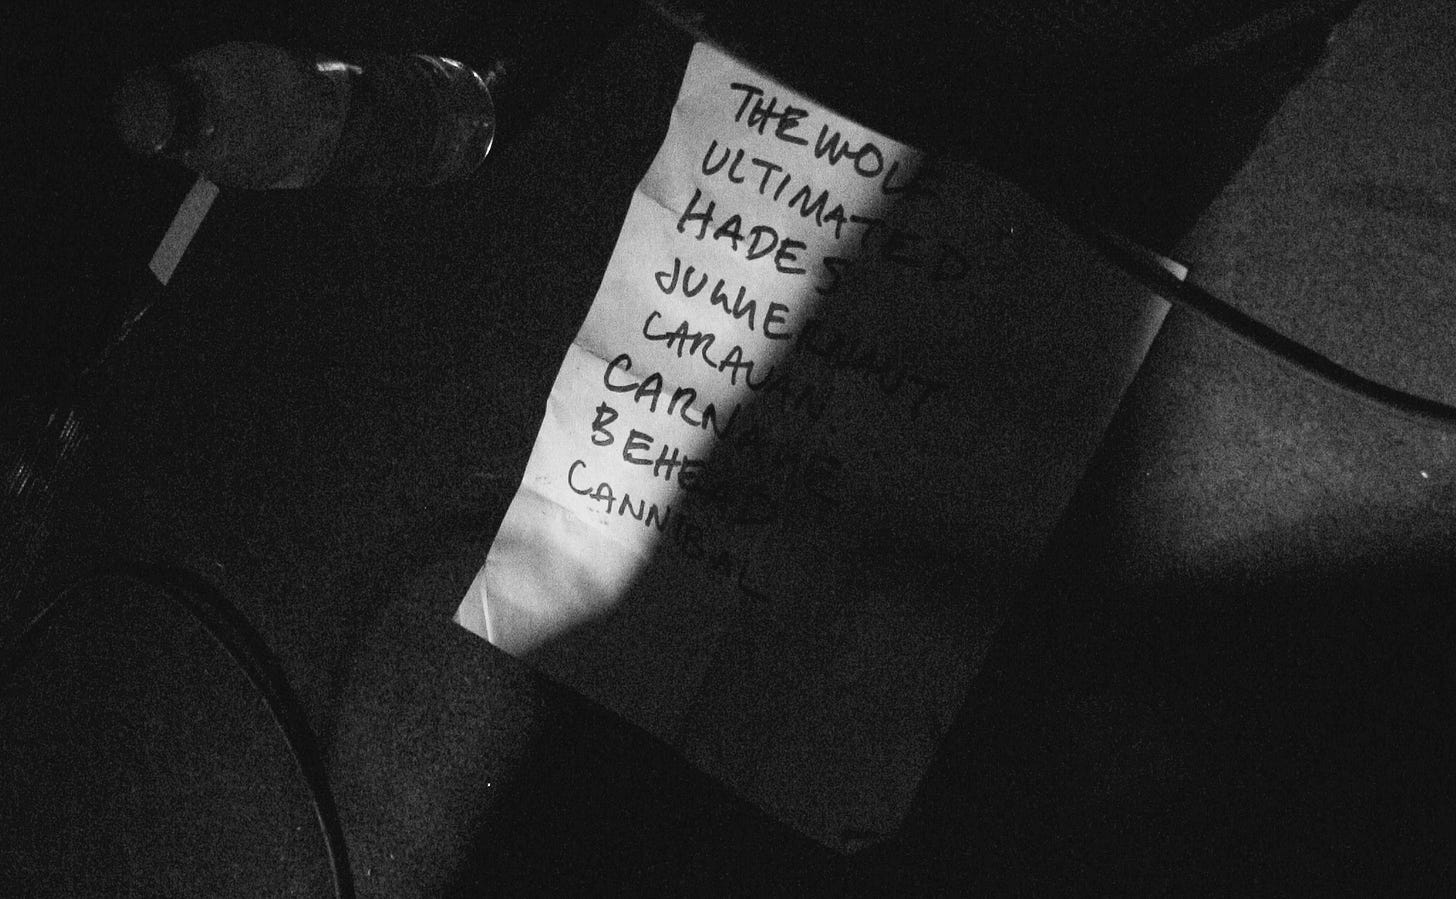 THE WOL
ULTIMATED
HADES
JUGGERNAUT
CARAVAN
CARNAGE
CANNIBAL